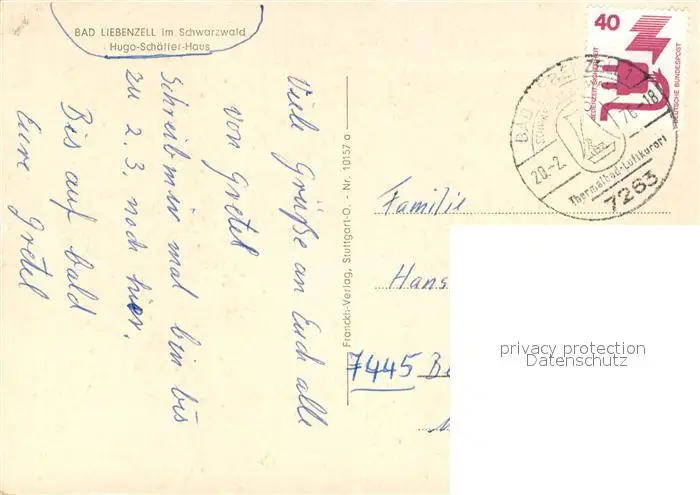 BAD LIEBENZELL im Schwarzwald
Hugo-Schäffer-Haus
Viele Grüße an Euch alle
von Gretel
Schreib mir mal bin bis
zu 2.3. noch hier.
Bis auf bald
Eure Gretel
Franckh-Verlag, Stuttgart-O. - Nr. 10157 a
40
JEDERZEIT SICHERHEIT
DEUTSCHE BUNDESPOST
BAD LIEBENZELL 1
20.-2. 76-18
Thermalbad-Luftkurort
7263
Familie
Hans
7445 Be
privacy protection
Datenschutz